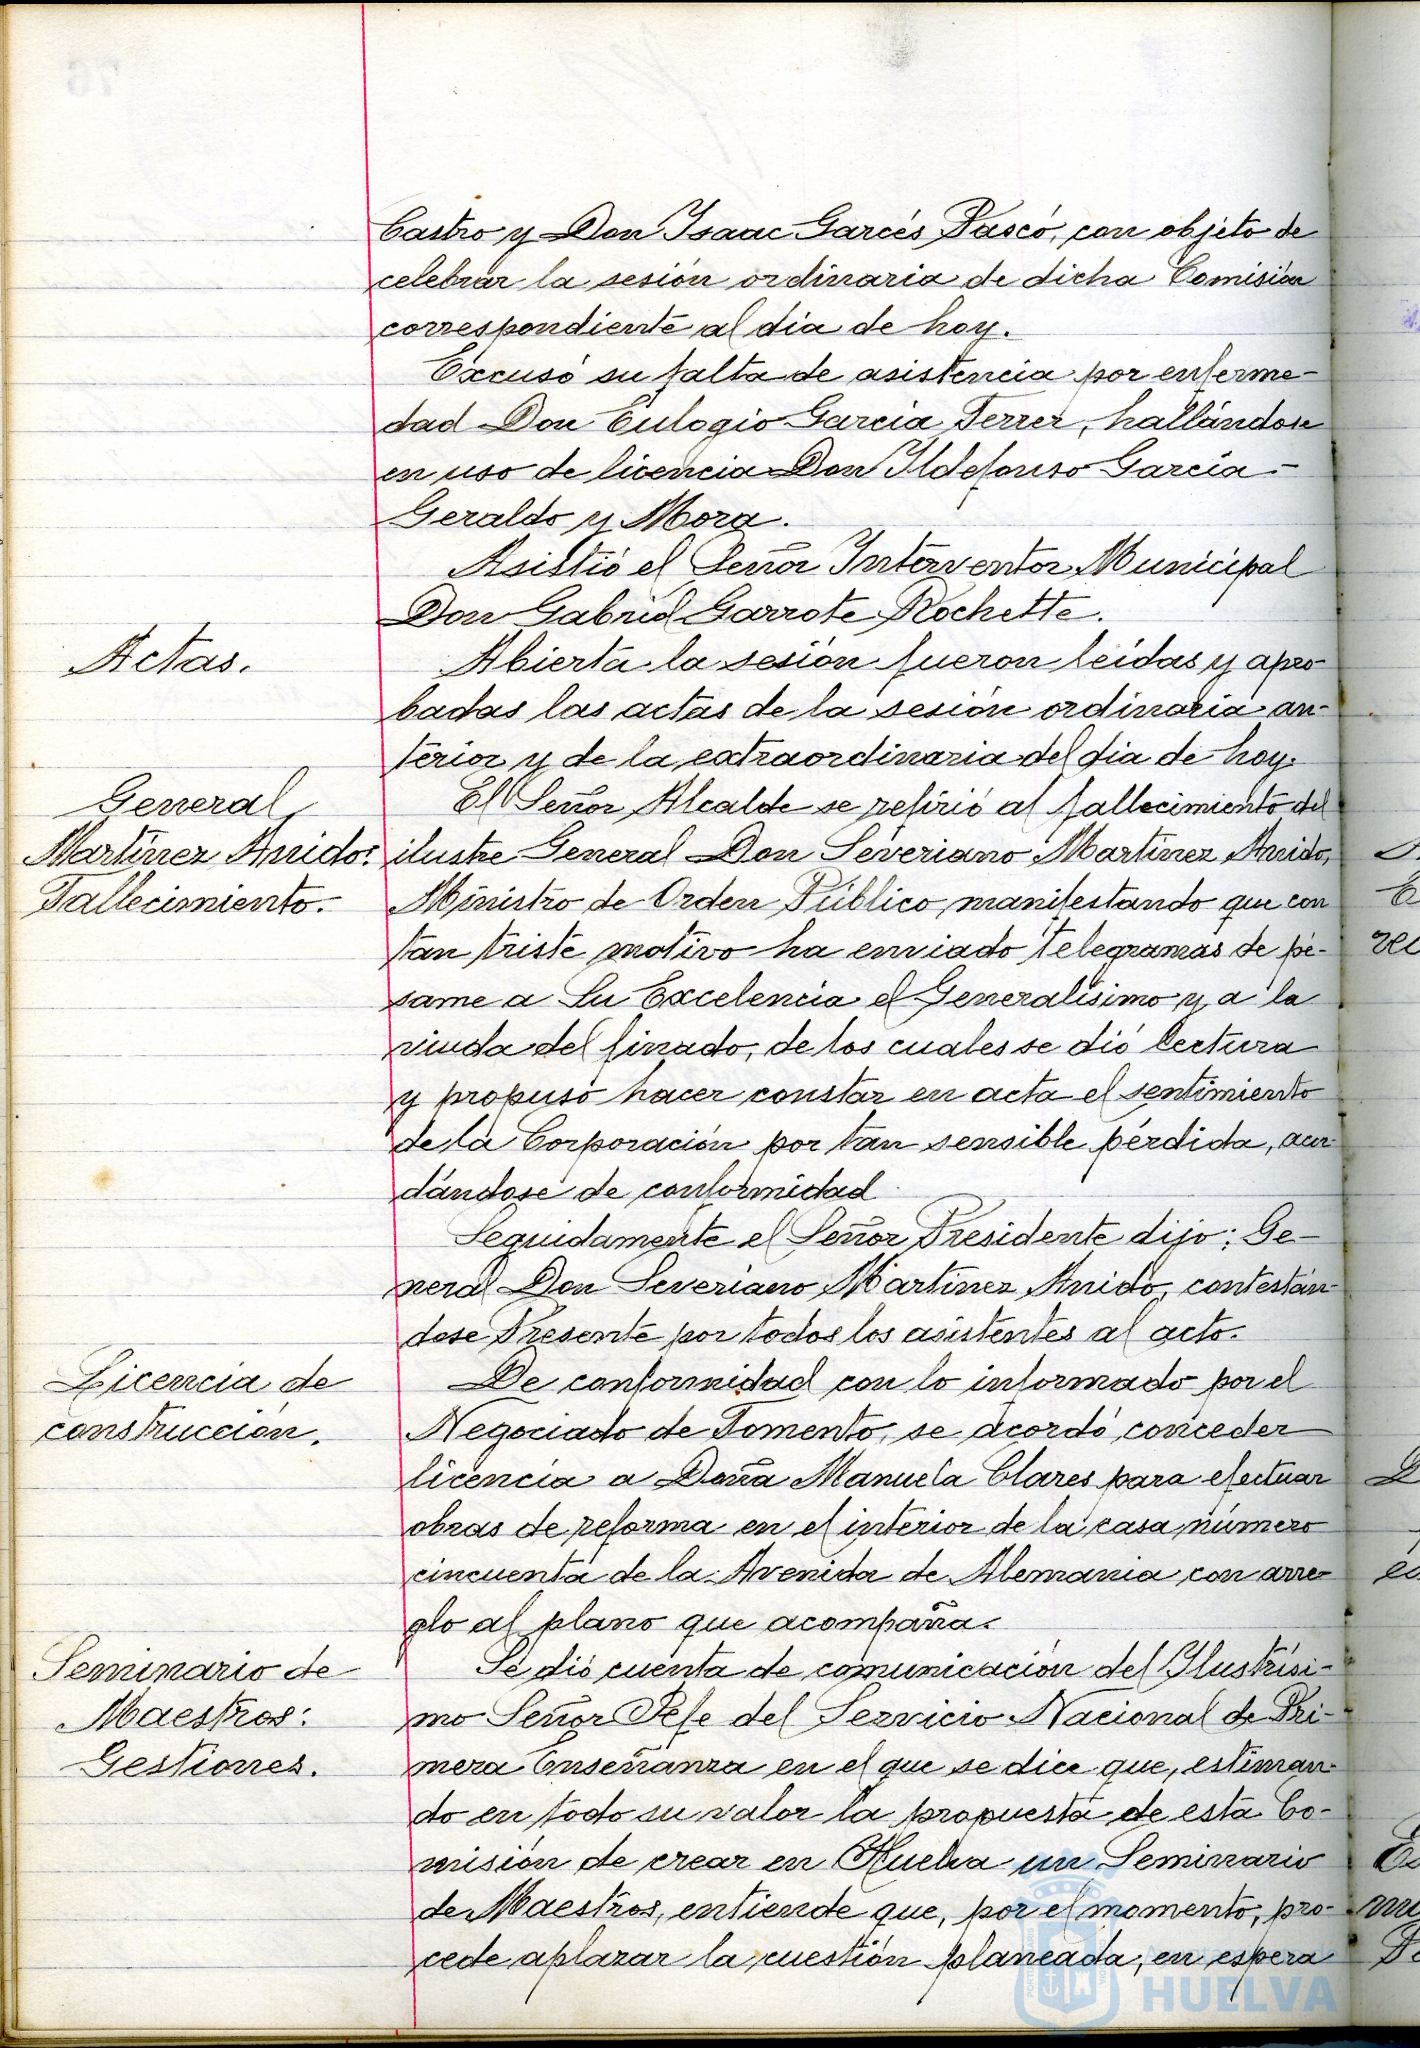 Castro y Don Isaac Garcés Pascó, con objeto de
celebrar la sesión ordinaria de dicha Comisión
correspondiente al dia de hoy.
Excusó su falta de asistencia por enferme-
dad Don Eulogio Garcia Ferrer, hallándose
en uso de licencia Don Ildefonso Garcia-
Geraldo y Mora.
Asistió el Señor Interventor Municipal
Don Gabriel Garrote Rochette.
Actas.
Abierta la sesión fueron leidas y apro-
badas las actas de la sesión ordinaria an-
terior y de la extraordinaria del dia de hoy.
General
Martínez Anido:
Fallecimiento.
El Señor Alcalde se refirió al fallecimiento del
ilustre General Don Severiano Martínez Anido,
Ministro de Orden Público, manifestando que con
tan triste motivo ha enviado telegramas de pé-
same a Su Excelencia el Generalísimo y a la
viuda del finado, de los cuales se dió lectura
y propuso hacer constar en acta el sentimiento
de la Corporación por tan sensible pérdida, acor-
dándose de conformidad.
Seguidamente el Señor Presidente dijo: Ge-
neral Don Severiano Martínez Anido, contestán-
dose Presente por todos los asistentes al acto.
Licencia de
construcción.
De conformidad con lo informado por el
Negociado de Fomento, se acordó conceder
licencia a Doña Manuela Clares para efectuar
obras de reforma en el interior de la casa número
cincuenta de la Avenida de Alemania con arre-
glo al plano que acompaña.
Seminario de
Maestros:
Gestiones.
Se dió cuenta de comunicación del Ilustrísi-
mo Señor Jefe del Servicio Nacional de Pri-
mera Enseñanza en el que se dice que, estiman-
do en todo su valor la propuesta de esta Co-
misión de crear en Huelva un Seminario
de Maestros, entiende que, por el momento, pro-
cede aplazar la cuestión planeada, en espera
HUELVA